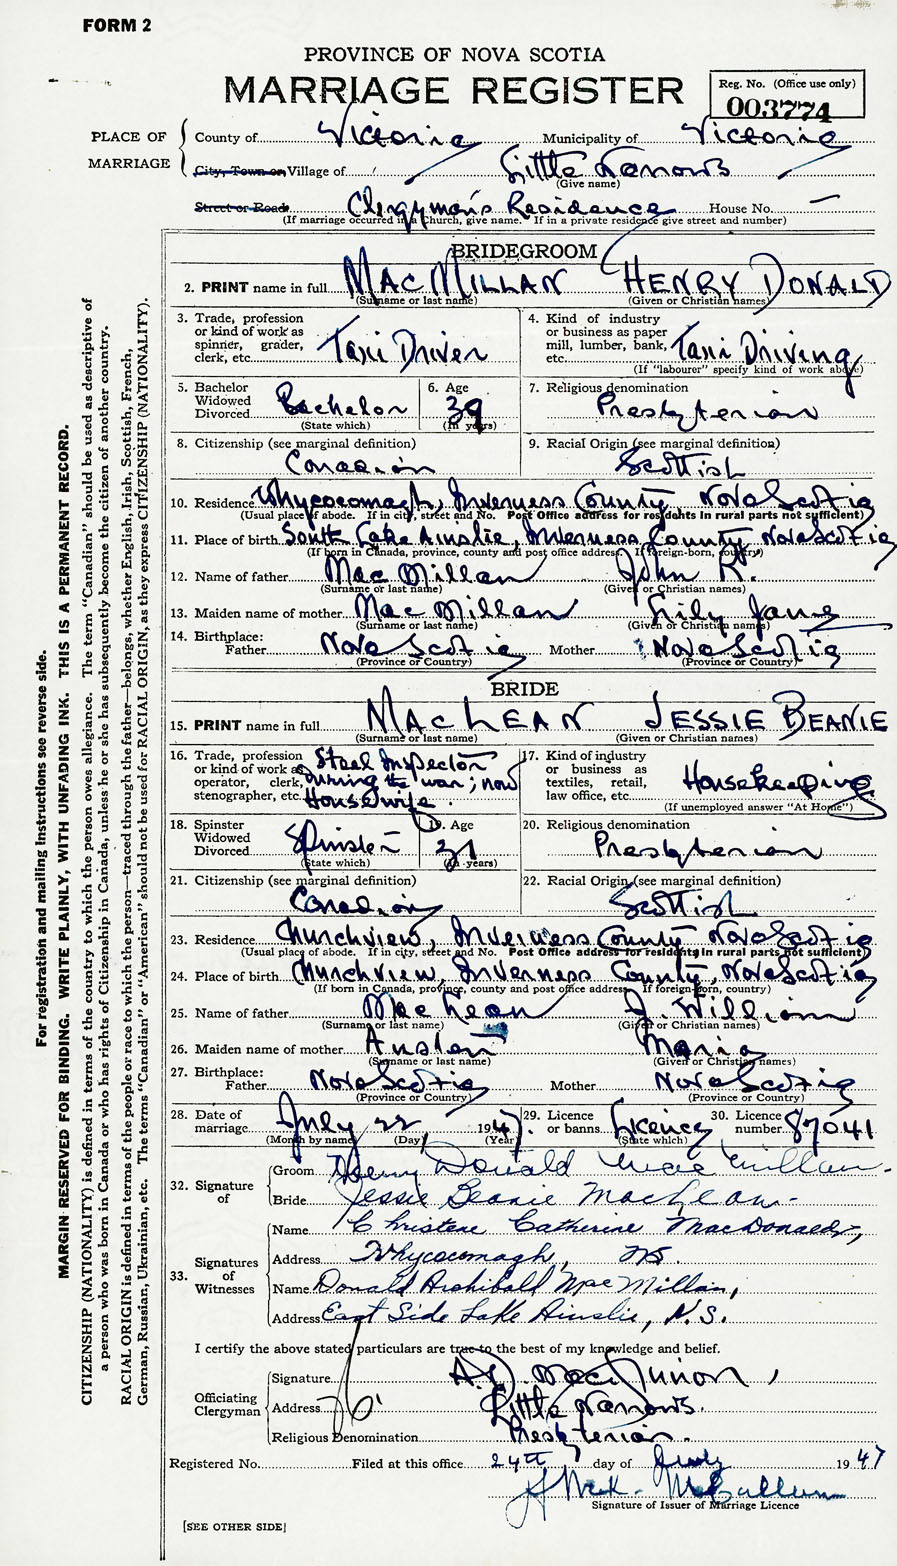 FORM 2
PROVINCE OF NOVA SCOTIA
MARRIAGE REGISTER
Reg. No. (Office use only)
003774
PLACE OF MARRIAGE
County of Victoria Municipality of Victoria
City, Town or Village of Little Narrows
(Give name)
Street or Road Clergyman's Residence House No. —
(If marriage occurred in a Church, give name. If in a private residence give street and number)
BRIDEGROOM
2. PRINT name in full MACMILLAN HENRY DONALD
(Surname or last name) (Given or Christian names)
3. Trade, profession or kind of work as spinner, grader, clerk, etc. Taxi Driver
4. Kind of industry or business as paper mill, lumber, bank, etc. Taxi Driving
(If "labourer" specify kind of work above)
5. Bachelor Widowed Divorced Bachelor
(State which)
6. Age 39
(In years)
7. Religious denomination
Presbyterian
8. Citizenship (see marginal definition)
Canadian
9. Racial Origin (see marginal definition)
Scottish
10. Residence Whycocomagh, Inverness County Nova Scotia
(Usual place of abode. If in city, street and No. Post Office address for residents in rural parts not sufficient)
11. Place of birth South Lake Ainslie, Inverness County, Nova Scotia
(If born in Canada, province, county and post office address. If foreign-born, country)
12. Name of father MacMillan John R.
(Surname or last name) (Given or Christian names)
13. Maiden name of mother MacMillan Lily Jane
(Surname or last name) (Given or Christian names)
14. Birthplace:
Father Nova Scotia Mother Nova Scotia
(Province or Country) (Province or Country)
BRIDE
15. PRINT name in full MACLEAN JESSIE BEANIE
(Surname or last name) (Given or Christian names)
16. Trade, profession or kind of work as operator, clerk, stenographer, etc. Steel Inspector during the war; now Housewife.
17. Kind of industry or business as textiles, retail, law office, etc. Housekeeping
(If unemployed answer "At Home")
18. Spinster Widowed Divorced Spinster
(State which)
19. Age 31
(In years)
20. Religious denomination
Presbyterian
21. Citizenship (see marginal definition)
Canadian
22. Racial Origin (see marginal definition)
Scottish
23. Residence Churchview, Inverness County Nova Scotia
(Usual place of abode. If in city, street and No. Post Office address for residents in rural parts not sufficient)
24. Place of birth Churchview, Inverness County, Nova Scotia
(If born in Canada, province, county and post office address. If foreign-born, country)
25. Name of father MacLean J. William
(Surname or last name) (Given or Christian names)
26. Maiden name of mother Austen Maria
(Surname or last name) (Given or Christian names)
27. Birthplace:
Father Nova Scotia Mother Nova Scotia
(Province or Country) (Province or Country)
28. Date of marriage July 22 1947.
(Month by name) (Day) (Year)
29. Licence or banns. Licence
(State which)
30. Licence number. 87041
32. Signature of
Groom Henry Donald MacMillan
Bride Jessie Beanie MacLean
33. Signatures of Witnesses
Name Christene Catherine MacDonald,
Address Whycocomagh, NS.
Name Donald Archibald MacMillan,
Address East Side Lake Ainslie, N.S.
I certify the above stated particulars are true to the best of my knowledge and belief.
Officiating Clergyman
Signature A.D. MacKinnon,
Address Little Narrows.
Religious Denomination Presbyterian.
Registered No. Filed at this office 24th day of July 1947
McCallum
Signature of Issuer of Marriage Licence
[SEE OTHER SIDE]
For registration and mailing instructions see reverse side.
MARGIN RESERVED FOR BINDING. WRITE PLAINLY, WITH UNFADING INK. THIS IS A PERMANENT RECORD.
CITIZENSHIP (NATIONALITY) is defined in terms of the country to which the person owes allegiance. The term "Canadian" should be used as descriptive of
a person who was born in Canada or who has rights of Citizenship in Canada, unless he or she has subsequently become the citizen of another country.
RACIAL ORIGIN is defined in terms of the people or race to which the person—traced through the father—belongs, whether English, Irish, Scottish, French,
German, Russian, Ukrainian, etc. The terms "Canadian" or "American" should not be used for RACIAL ORIGIN, as they express CITIZENSHIP (NATIONALITY).